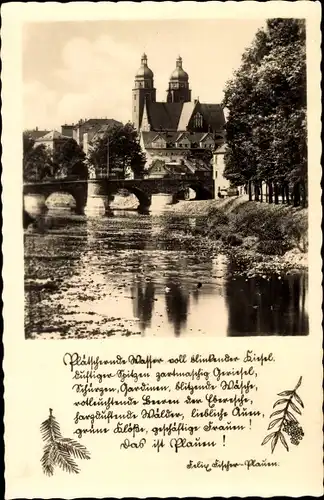 Plätschernde Wasser voll blinkender Kiesel,
duftiger Spitzen zartmaschig Geriesel,
Schürzen, Gardinen, blitzende Wäsche,
rotleuchtende Beeren der Eberesche,
harzduftende Wälder, liebliche Auen,
grüne Klöße, geschäftige Frauen!
Das ist Plauen!
Felix Fischer-Plauen.